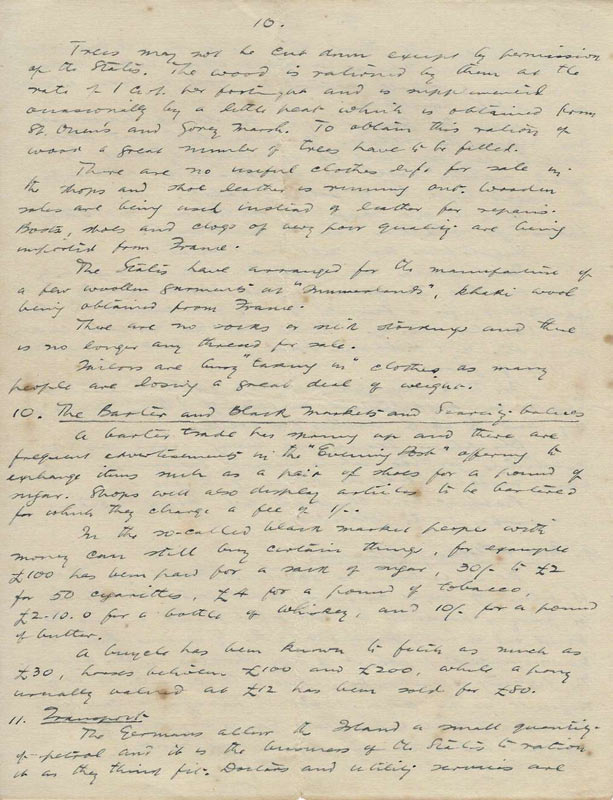 10.
Trees may not be cut down except by permission
of the States. The wood is rationed by them at the
rate of 1 Cwt. per fortnight and is supplemented
occasionally by a little peat which is obtained from
St. Ouen's and Gorey Marsh. To obtain this ration of
wood a great number of trees have to be felled.
There are no useful clothes left for sale in
the shops and shoe leather is running out. Wooden
soles are being used instead of leather for repairs.
Boots, shoes and clogs of very poor quality are being
imported from France.
The States have arranged for the manufacture of
a few woollen garments at "Summerlands", khaki wool
being obtained from France.
There are no socks or silk stockings and there
is no longer any thread for sale.
Tailors are busy "taking in" clothes as many
people are losing a great deal of weight.
10. The Barter and Black Markets and Scarcity Values
A barter trade has sprung up and there are
frequent advertisements in the "Evening Post" offering to
exchange items such as a pair of shoes for a pound of
sugar. Shops will also display articles to be bartered
for which they charge a fee of 1/-.
In the so-called black market people with
money can still buy certain things, for example
£100 has been paid for a sack of sugar, 30/- to £2
for 50 cigarettes, £4 for a pound of tobacco,
£2-10.0 for a bottle of whiskey, and 10/- for a pound
of butter.
A bicycle has been known to fetch as much as
£30, horses between £100 and £200, while a pony
usually valued at £12 has been sold for £80.
11. Transport
The Germans allow the Island a small quantity
of petrol and it is the business of the States to ration
it as they think fit. Doctors and utility services are